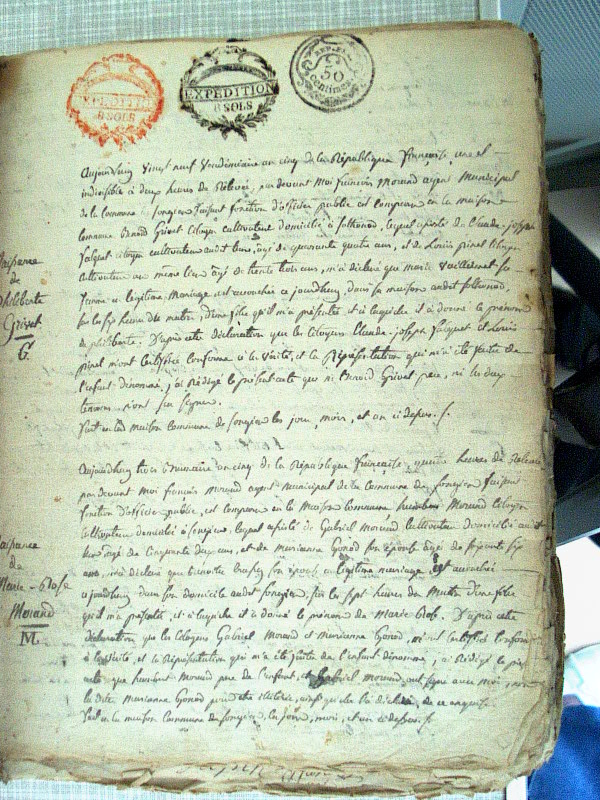 EXPEDITION
8 SOLS
EXPEDITION
8 SOLS
REP. FRA
50
Centimes
Naissance
de
Philiberte
Grivet
G.
Aujourdhuy vingt neuf Vendemiaire an cinq de la République française une et
indivisible à deux heures de Relevée, par devant Moi françois Morand agent Municipal
de la Commune de Songieu faisant fonction d'officier public est comparu en la maison
Commune Grivet Citoyen Cultivateur domicilié à Sothonod, lequel assisté de Claude-joseph
citoyen cultivateur audit lieu, agé de quarante quatre ans, et de Louis pinel Citoyen
Cultivateur au même lieu agé de trente trois ans, m'a déclaré que marie
femme en légitime Mariage est accouchée ce jourdhuy, dans sa maison audit Sothonod,
sur les six heures du matin, d'une fille qu'il m'a présentée et à laquelle il a donné le prénom
de philiberte. D'après cette déclaration que les Citoyens Claude-joseph et Louis
pinel m'ont certifiée conforme à la vérité, et la Représentation qui m'a été faite de
l'enfant dénommé, j'ai Rédigé le présent acte que ni Grivet pere, ni les deux
temoins n'ont su signer.
Fait en la maison Commune de Songieu les jour, mois, et an ci dessus.
Naissance
de
Marie-Rose
Morand
M.
Aujourdhuy trois Brumaire an cinq de la République française, quatre heures de Relevée
pardevant moi françois Morand agent municipal de la Commune de Songieu faisant
fonction d'officier public, est comparu en la Maison Commune Morand Citoyen
Cultivateur domicilié à Songieu, lequel assisté de Gabriel Morand Cultivateur domicilié audit
lieu agé de Cinquante deux ans, et de Marianne Gonod son épouse agée de
ans, m'a déclaré que son épouse en légitime mariage est accouchée
ce jourdhuy dans son domicile audit Songieu, sur les sept heures du Matin d'une fille
qu'il m'a présentée, et à laquelle il a donné le prénom de Marie Rose. D'après cette
déclaration que les Citoyens Gabriel Morand et Marianne Gonod, m'ont certifiée conforme
à la vérité, et la Représentation qui m'a été faite de l'enfant dénommé, j'ai Rédigé le présent
acte que Morand pere de l'enfant, et Gabriel Morand, ont signé avec moi, non
la dite Marianne Gonod pour être illiterée, ainsi qu'elle l'a déclaré, de ce enquise
Fait en la maison Commune de Songieu, les jour, mois, et an ci dessus.